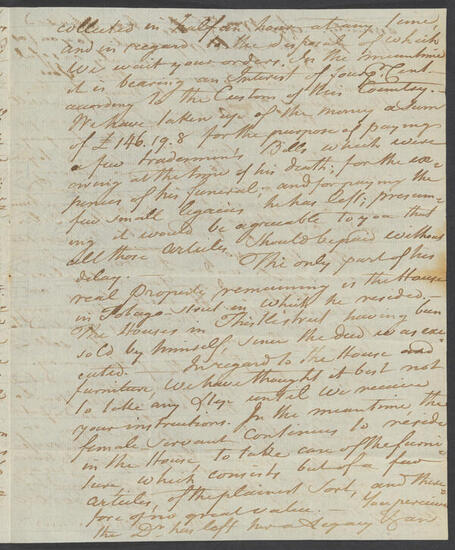 collected in half an hour at any time
and in regard to the disposal of which
We wait your orders. In the meantime
it is bearing an Interest of four P Cent
according to the Custom of this Country.
We have taken up of the money a Sum
of £146.19.8 for the purpose of paying
a few tradesmens Bills which were
owing at the time of his death; for the ex=
pences of his funeral, and for paying the
few small legacies he has left; presum=
ing it would be agreable to you that
all those articles should be paid without
delay. The only part of his
real Property remaining is the House
in Tobago Street in which he resided,
The Houses in Thistlestreet having been
sold by himself since the deed was exe=
cuted. In regard to the House and
furniture, we have thought it best not
to take any Step until we receive
your instructions. In the meantime, the
female servant continues to reside
in the House to take care of the furni=
ture, which consists but of a few
articles, of the plainest sort, and there=
fore of no great value. You perceive
the Dr. has left her a Legacy of an